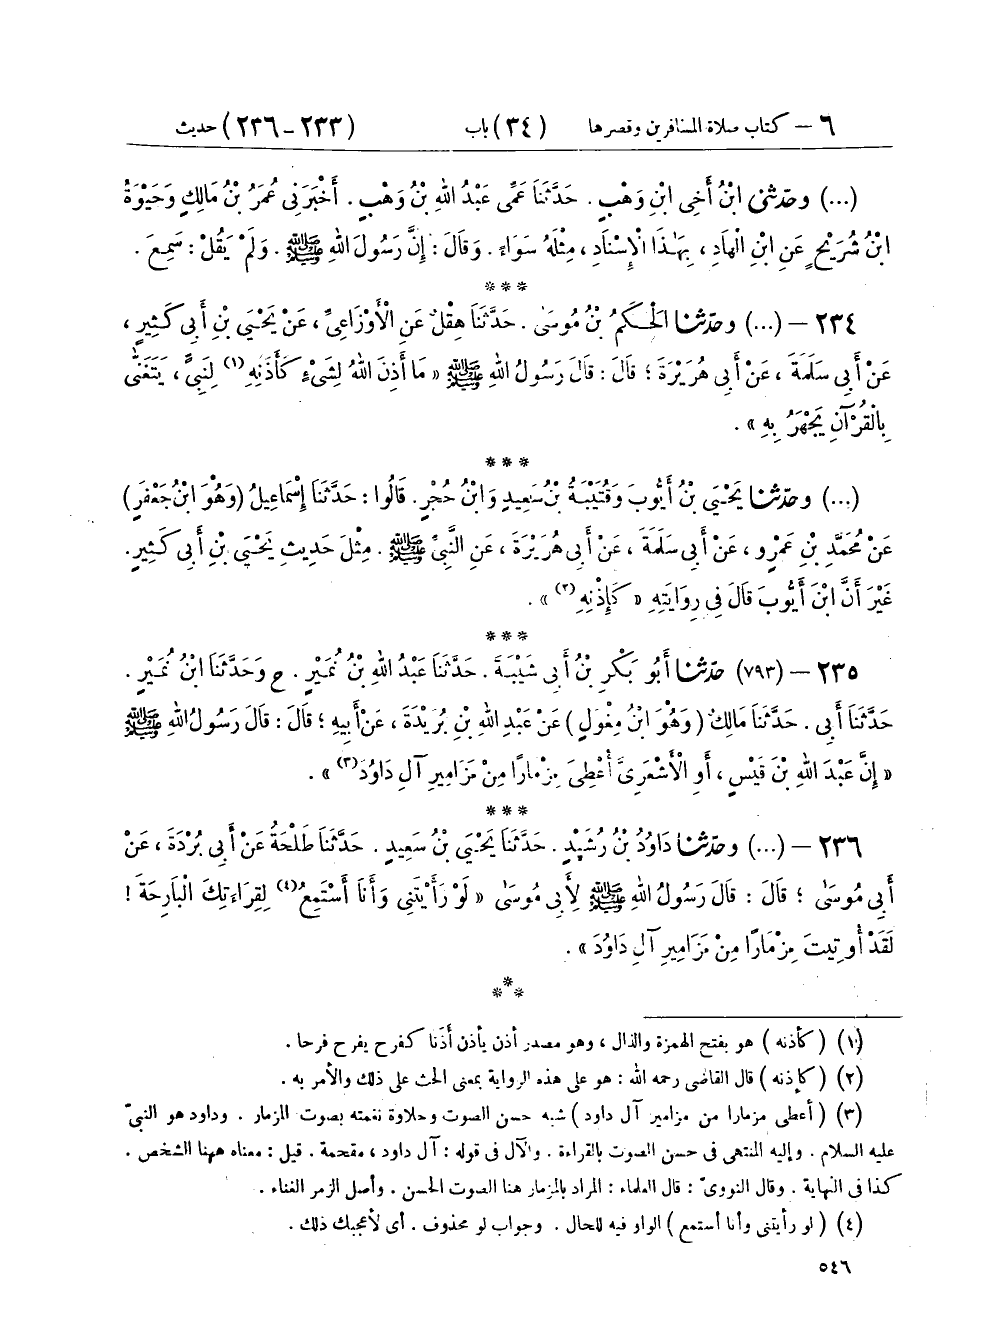 ٦ – كتاب صلاة المسافرين وقصرها (٣٤) باب (٢٣٣ – ٢٣٦) حديث
(...) وحَدَّثَنِي ابْنُ أَخِي ابْنِ وَهْبٍ . حَدَّثَنَا عَمِّي عَبْدُ اللهِ بْنُ وَهْبٍ . أَخْبَرَنِي عُمَرُ بْنُ مَالِكٍ وَحَيْوَةُ
ابْنُ شُرَيْحٍ عَنِ ابْنِ الْهَادِ ، بِهَذَا الْإِسْنَادِ ، مِثْلَهُ سَوَاءً . وَقَالَ : إِنَّ رَسُولَ اللهِ ﷺ . وَلَمْ يَقُلْ : سَمِعَ .
* * *
٢٣٤ – (...) وحَدَّثَنَا الْحَكَمُ بْنُ مُوسَىٰ . حَدَّثَنَا هِقْلٌ عَنِ الْأَوْزَاعِيِّ ، عَنْ يَحْيَىٰ بْنِ أَبِي كَثِيرٍ ،
عَنْ أَبِي سَلَمَةَ ، عَنْ أَبِي هُرَيْرَةَ ؛ قَالَ : قَالَ رَسُولُ اللهِ ﷺ « مَا أَذِنَ اللهُ لِشَيْءٍ كَأَذَنِهِ(١) لِنَبِيٍّ ، يَتَغَنَّى
بِالْقُرْآنِ يَجْهَرُ بِهِ » .
* * *
(...) وحَدَّثَنَا يَحْيَىٰ بْنُ أَيُّوبَ وَقُتَيْبَةُ بْنُ سَعِيدٍ وَابْنُ حُجْرٍ . قَالُوا : حَدَّثَنَا إِسْمَاعِيلُ (وَهُوَ ابْنُ جَعْفَرٍ)
عَنْ مُحَمَّدِ بْنِ عَمْرٍو ، عَنْ أَبِي سَلَمَةَ ، عَنْ أَبِي هُرَيْرَةَ ، عَنِ النَّبِيِّ ﷺ . مِثْلَ حَدِيثِ يَحْيَىٰ بْنِ أَبِي كَثِيرٍ .
غَيْرَ أَنَّ ابْنَ أَيُّوبَ قَالَ فِي رِوَايَتِهِ « كَإِذْنِهِ(٢) » .
* * *
٢٣٥ – (٧٩٣) حَدَّثَنَا أَبُو بَكْرِ بْنُ أَبِي شَيْبَةَ . حَدَّثَنَا عَبْدُ اللهِ بْنُ نُمَيْرٍ . ح وَحَدَّثَنَا ابْنُ نُمَيْرٍ .
حَدَّثَنَا أَبِي . حَدَّثَنَا مَالِكٌ ( وَهُوَ ابْنُ مِغْوَلٍ ) عَنْ عَبْدِ اللهِ بْنِ بُرَيْدَةَ ، عَنْ أَبِيهِ ؛ قَالَ : قَالَ رَسُولُ اللهِ ﷺ
« إِنَّ عَبْدَ اللهِ بْنَ قَيْسٍ ، أَوِ الْأَشْعَرِيَّ أُعْطِيَ مِزْمَارًا مِنْ مَزَامِيرِ آلِ دَاوُدَ(٣) » .
* * *
٢٣٦ – (...) وحَدَّثَنَا دَاوُدُ بْنُ رُشَيْدٍ . حَدَّثَنَا يَحْيَىٰ بْنُ سَعِيدٍ . حَدَّثَنَا طَلْحَةُ عَنْ أَبِي بُرْدَةَ ، عَنْ
أَبِي مُوسَىٰ ؛ قَالَ : قَالَ رَسُولُ اللهِ ﷺ لِأَبِي مُوسَىٰ « لَوْ رَأَيْتَنِي وَأَنَا أَسْتَمِعُ(٤) لِقِرَاءَتِكَ الْبَارِحَةَ !
لَقَدْ أُوتِيتَ مِزْمَارًا مِنْ مَزَامِيرِ آلِ دَاوُدَ » .
* * *
(١) ( كأذنه ) هو بفتح الهمزة والذال ، وهو مصدر أذن يأذن أذَنا كفرح يفرح فرحا .
(٢) ( كإذنه ) قال القاضى رحمه الله : هو على هذه الرواية بمعنى الحث على ذلك والأمر به .
(٣) ( أعطى مزمارا من مزامير آل داود ) شبه حسن الصوت وحلاوة نغمته بصوت المزمار . وداود هو النبىّ
عليه السلام . وإليه المنتهى فى حسن الصوت بالقراءة . والآل فى قوله : آل داود ، مقحمة . قيل : معناه ههنا الشخص .
كذا فى النهاية . وقال النووىّ : قال العلماء : المراد بالمزمار هنا الصوت الحسن . وأصل الزمر الغناء .
(٤) ( لو رأيتنى وأنا أستمع ) الواو فيه للحال . وجواب لو محذوف . أى لأعجبك ذلك .
٥٤٦